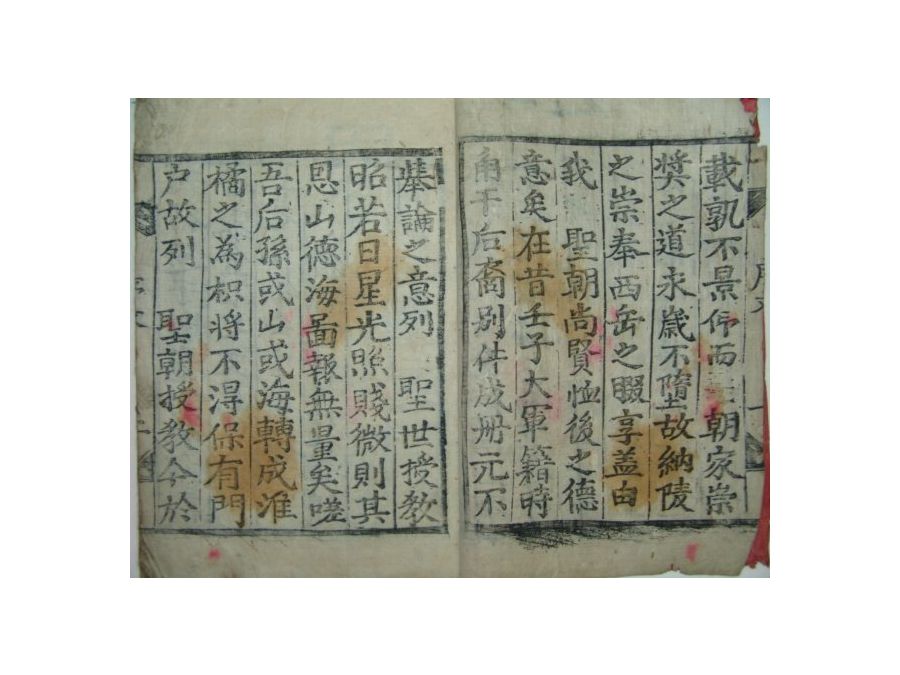 載孰不景仰而 朝家崇
奬之道永歲不墮故納陵
之崇奉西岳之腏享盖由
我 聖朝尚賢恤後之德
意矣在昔壬子大軍籍時
角干后裔别件成册元不
舉論之意列 聖世授教
昭若日星光照賤微則其
恩山德海啚報無量矣嗟
吾后孫或山或海轉成淮
橘之為枳將不淂保有門
户故列 聖朝授教今於
序文